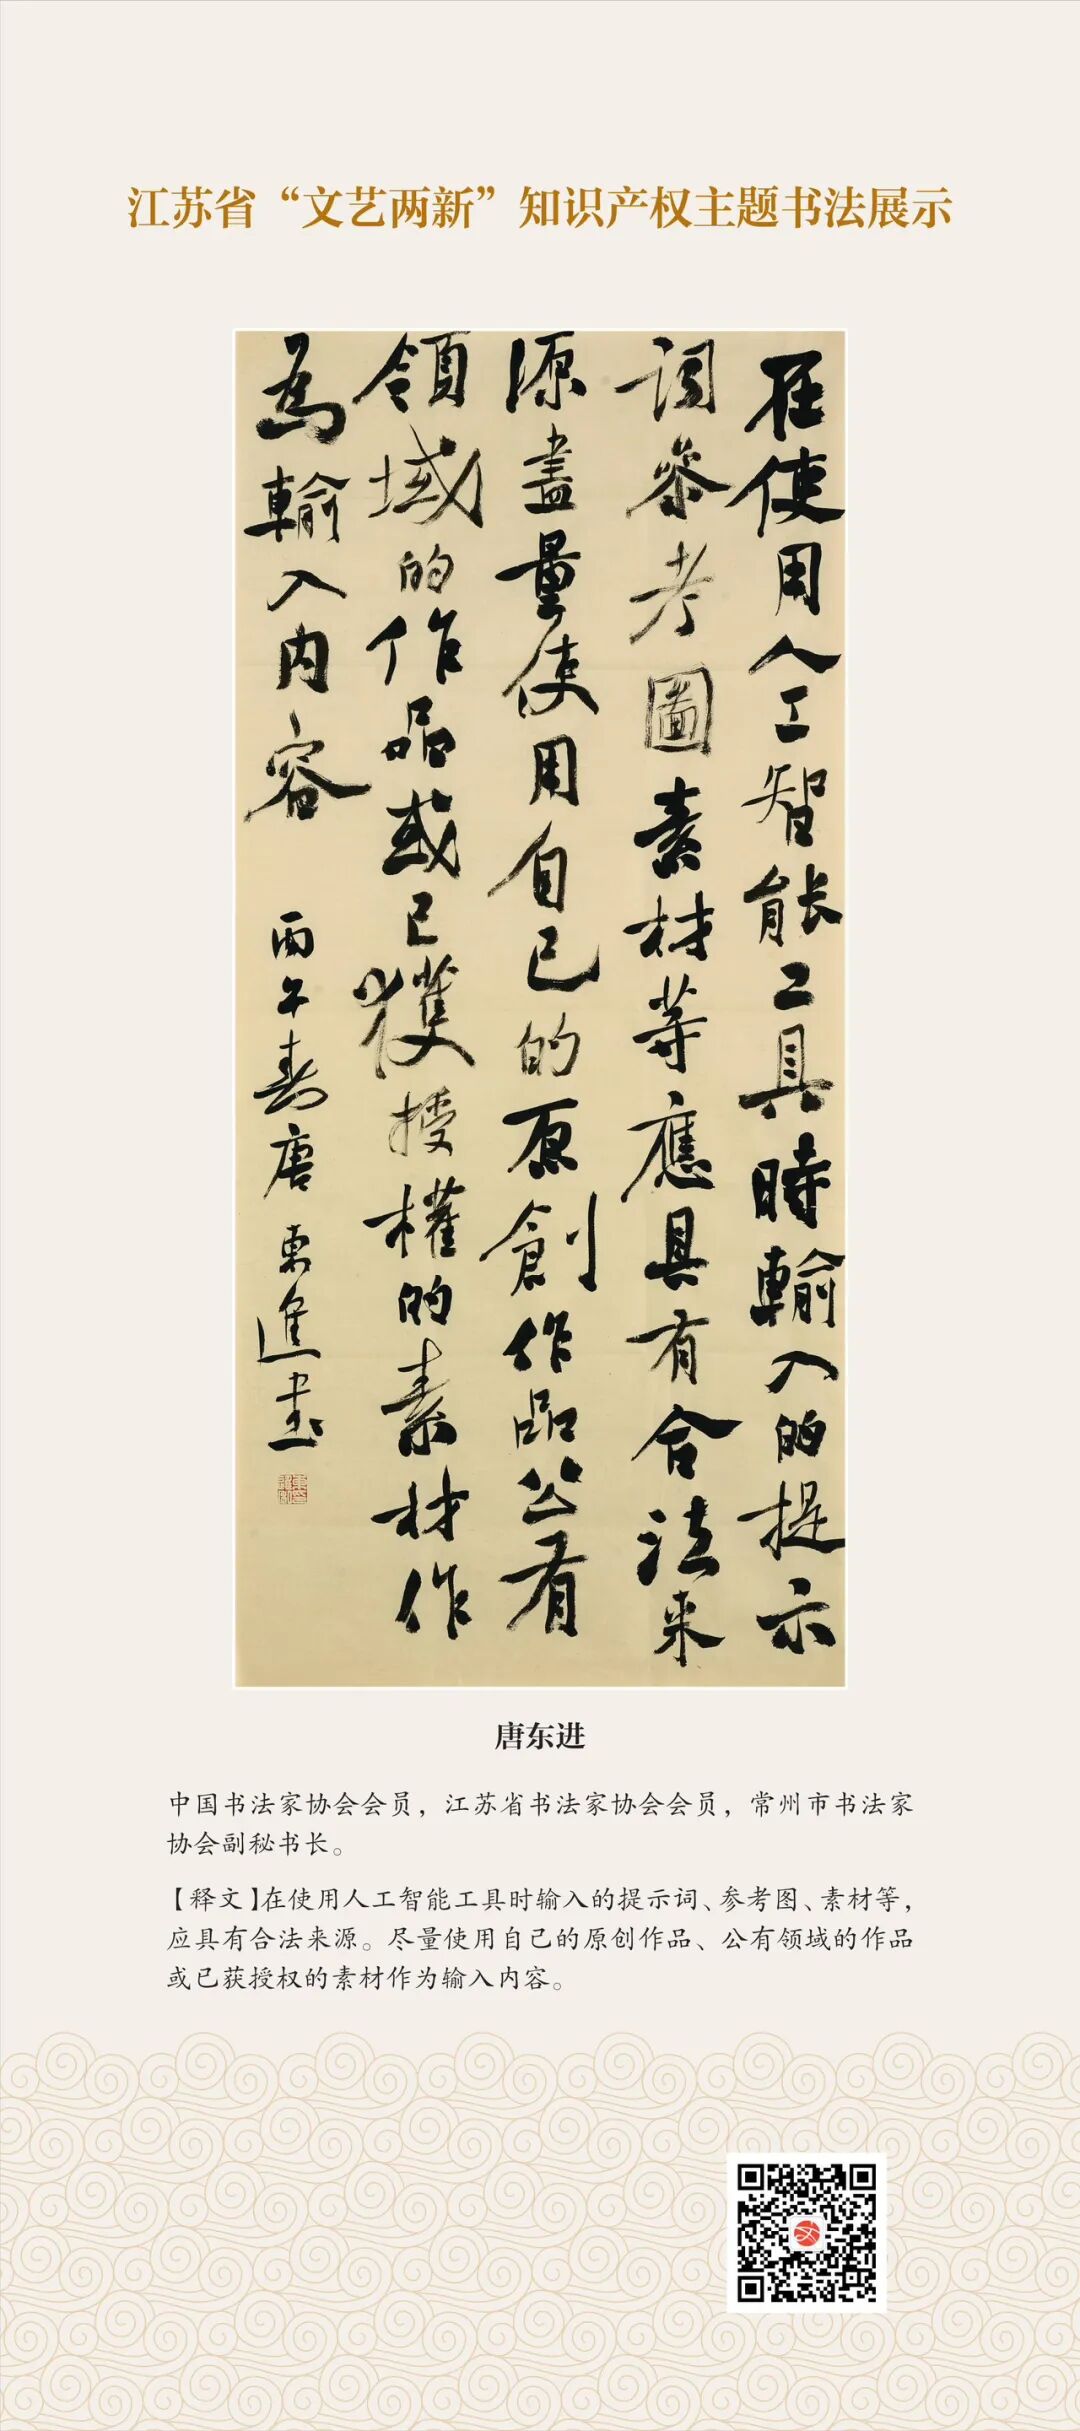 江苏省“文艺两新”知识产权主题书法展示
在使用人工智能工具時輸入的提示
詞參考圖素材等應具有合法来
源盡量使用自己的原創作品公有
領域的作品或已獲授權的素材作
為輸入内容
丙午春唐東進書
唐东进
中国书法家协会会员，江苏省书法家协会会员，常州市书法家
协会副秘书长。
【释文】在使用人工智能工具时输入的提示词、参考图、素材等，
应具有合法来源。尽量使用自己的原创作品、公有领域的作品
或已获授权的素材作为输入内容。